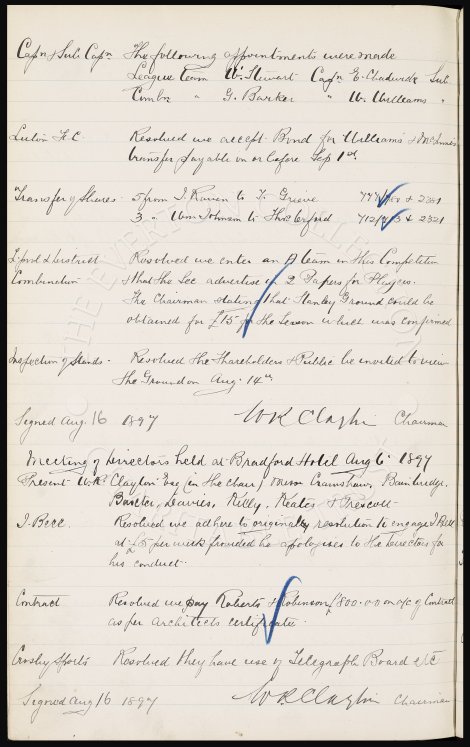 Capn & Sub Capn The following appointments were made
League Team W. Stewart Capn E. Chadwick Sub
Combn " G. Barker " W. Williams "
Luton F.C. Resolved we accept Bond for Williams & McInnes
transfer payable on or before Sep 1st
Transfer of Shares 5 from J. Raven to Grieve & 2321
3 " Wm Johnson to & 2321
L'pool & District Resolved we enter an A team in this Competition
Combination & that the Sec advertise in 2 Papers for Players.
The Chairman stating that Stanley Ground could be
obtained for £15 for the Season which was confirmed
Inspection of Stands. Resolved the Shareholders & Public be invited to view
the Ground on Aug. 14th
Signed Aug 16 1897 W R Clayton Chairman
Meeting of Directors held at Bradford Hotel Aug 6 1897
Present W.R. Clayton Esq (in the chair) Messrs Crawshaw, Bainbridge,
Baxter, Davies, Kelly, Keates & Prescott
J. Bell Resolved we adhere to originally resolution to engage J Bell
at £5 per week provided he apologises to the Directors for
his conduct.
Contract Resolved we pay Roberts & Robinson £800.0.0 on a/c of Contract
as per Architects certificate.
Crosby Sports Resolved they have use of Telegraph Board etc
Signed Aug 16 1897 W R Clayton Chairman